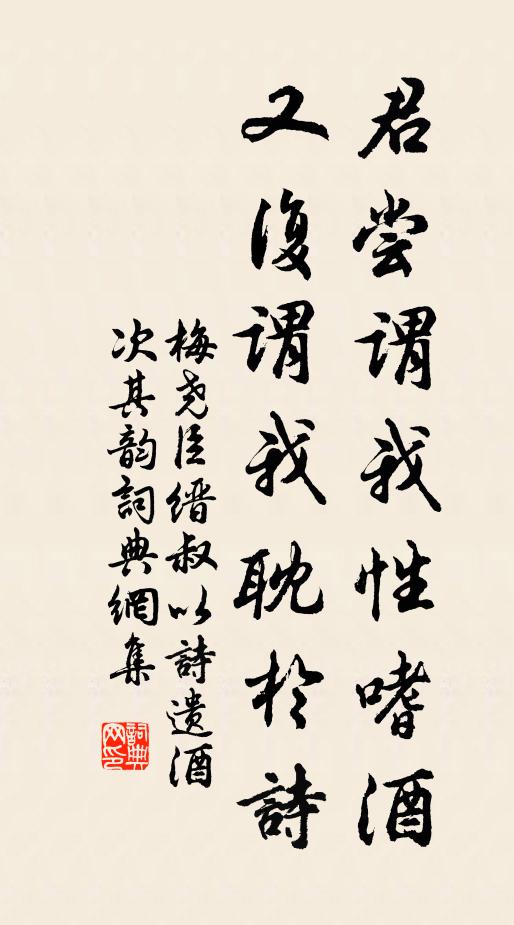 君尝谓我性嗜酒
又復谓我耽於詩
梅尧臣缙叔以詩遗酒
次其韵詞典網集
詞典
网印